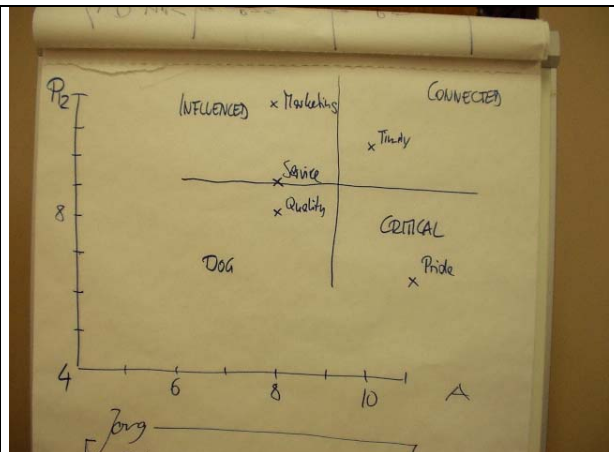 P2
INFLUENCED
× Marketing
CONNECTED
× Timely
Service
×
8
× Quality
CRITICAL
DOG
Pride
×
4
6
8
10
A
Jorg